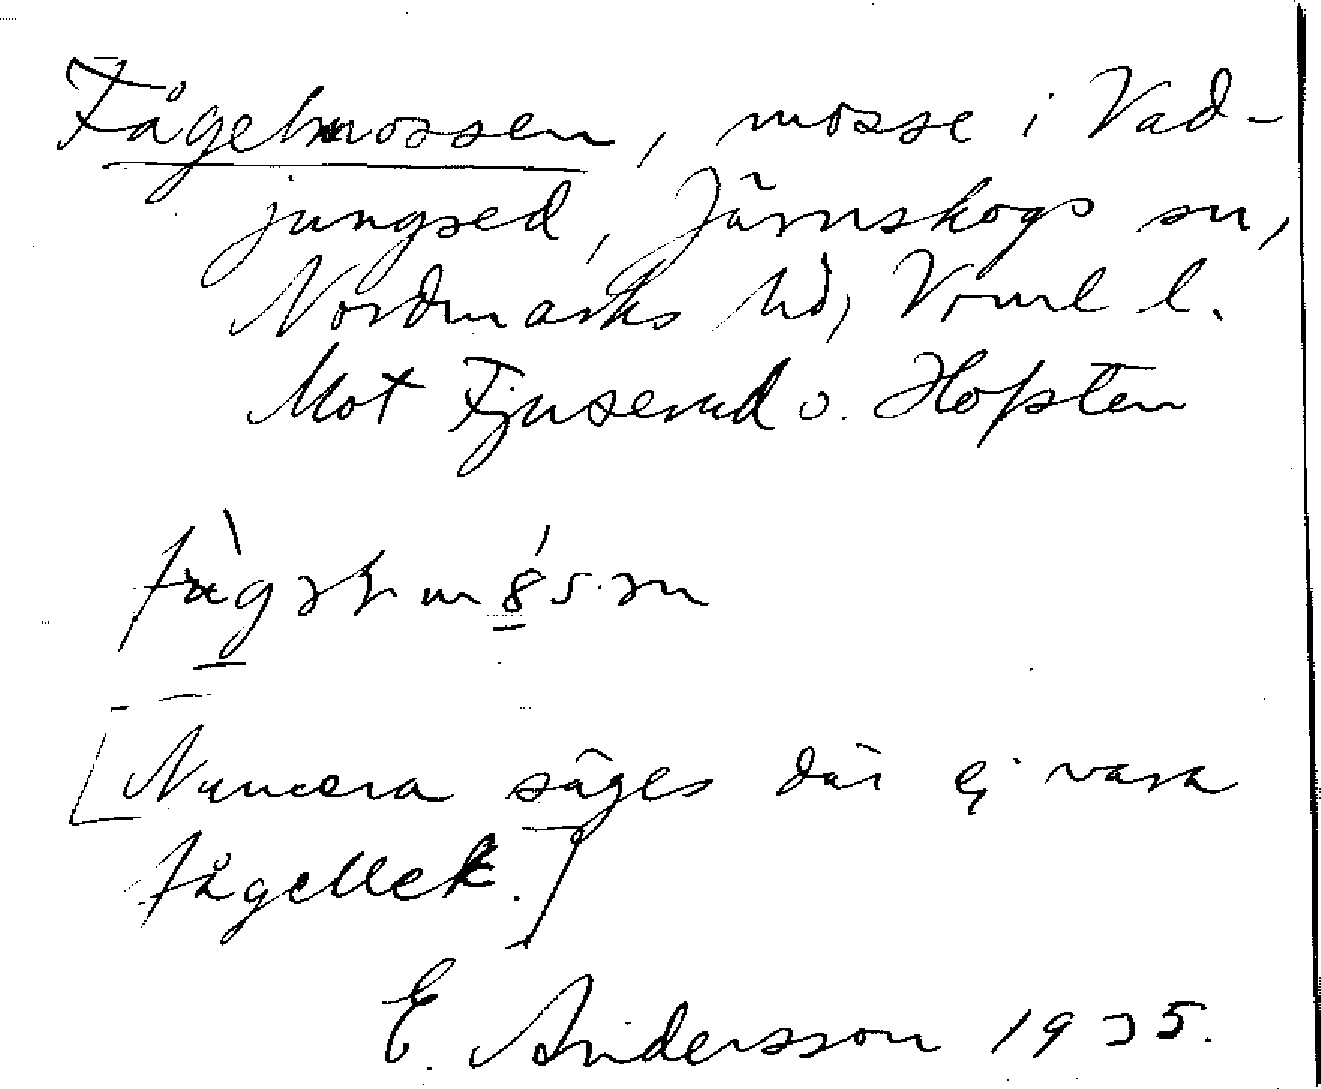 Fågelmossen, mosse i Vad-
jungsed, Järnskogs sn,
Nordmarks hd, Vrml l.
Mot Fjuserud o. Hopsten
Numera säges där ej vara
fågellek.]
E. Andersson 1935.